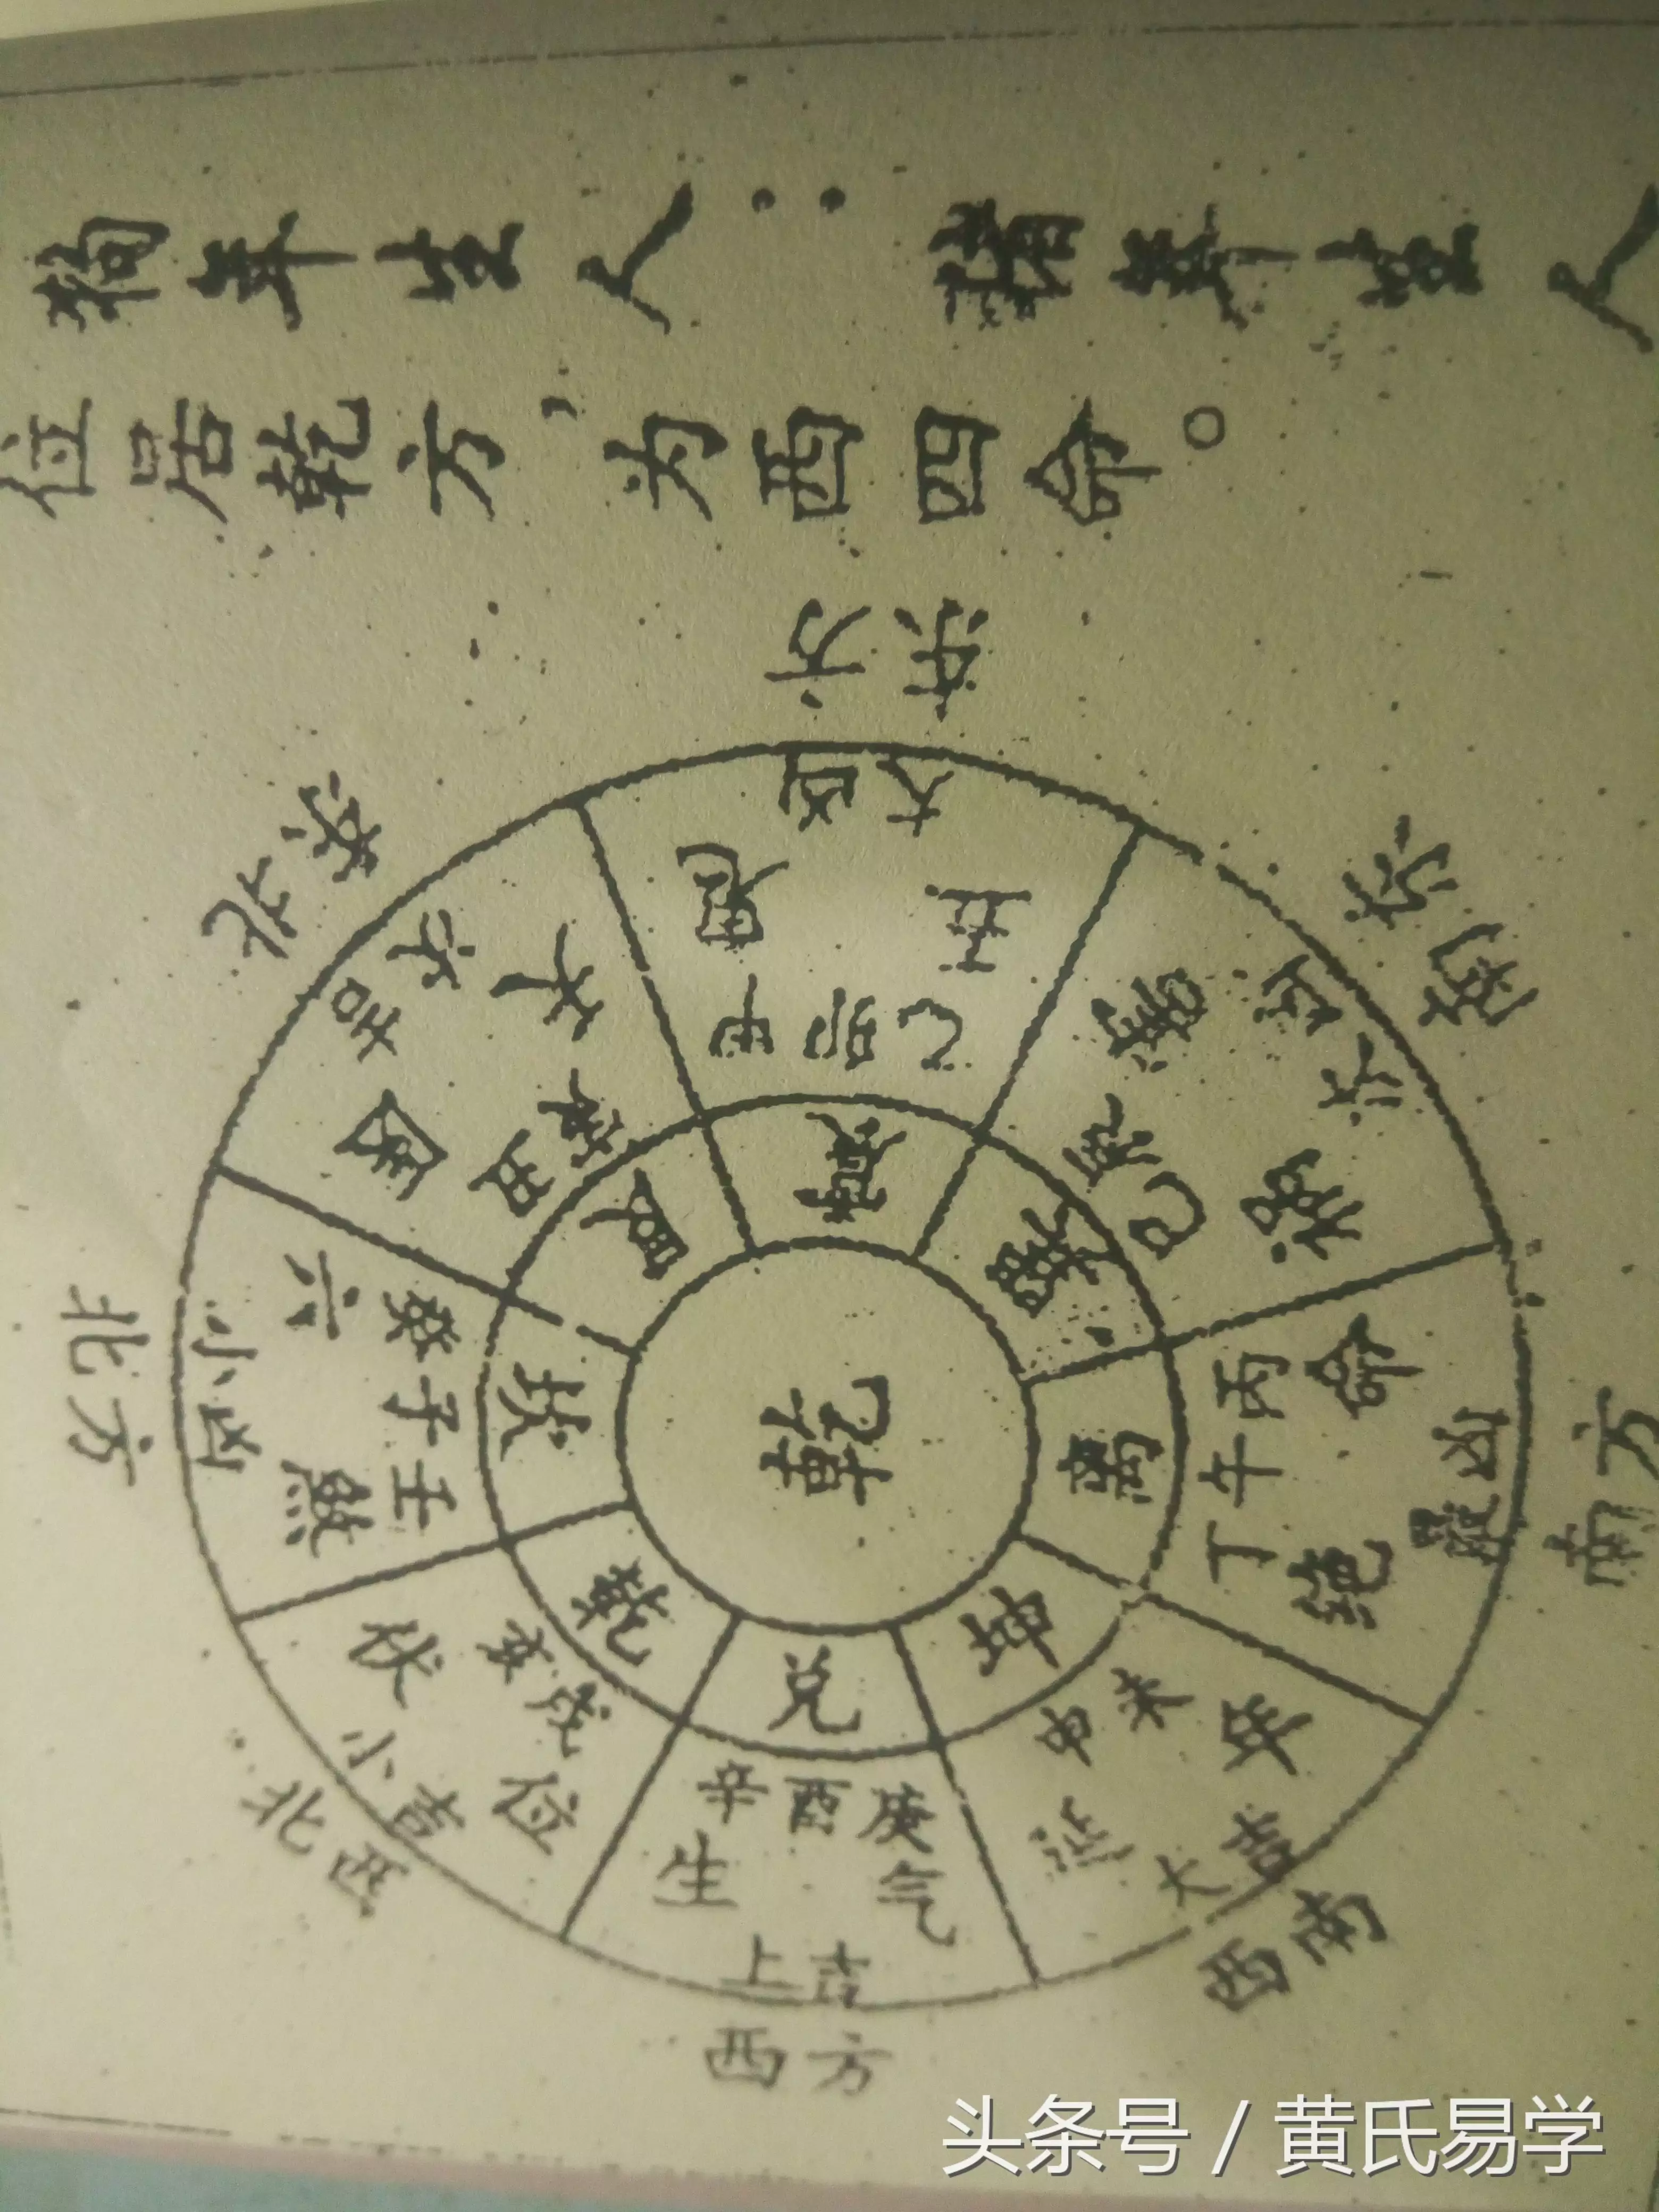 狗年生人：猪年生人
位居乾方，为西四命。
东方
大凶
五鬼
甲卯乙
震
东南
大凶
祸
巳
巽
南方
凶
绝命
丙午丁
离
西南
大吉
延年
未申
坤
西方
上吉
生气
辛酉庚
兑
北西
小吉
伏位
亥戌
乾
北方
小凶
六煞
癸子壬
坎
东北
吉
天
丑
艮
乾
头条号 / 黄氏易学